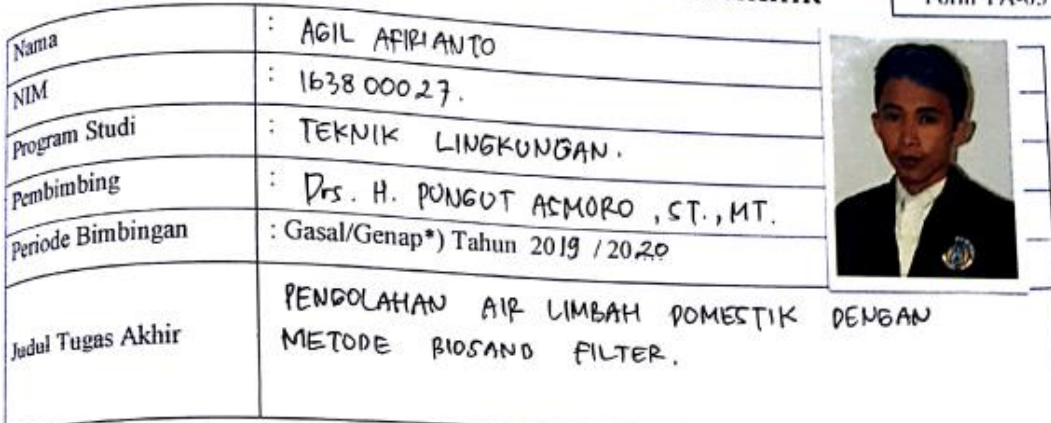 Nama : AGIL AFIRIANTO
NIM : 163800027.
Program Studi : TEKNIK LINGKUNGAN.
Pembimbing : Drs. H. PUNGUT ASMORO , ST., MT.
Periode Bimbingan : Gasal/Genap*) Tahun 2019 / 2020
Judul Tugas Akhir PENGOLAHAN AIR LIMBAH DOMESTIK DENGAN
METODE BIOSAND FILTER.